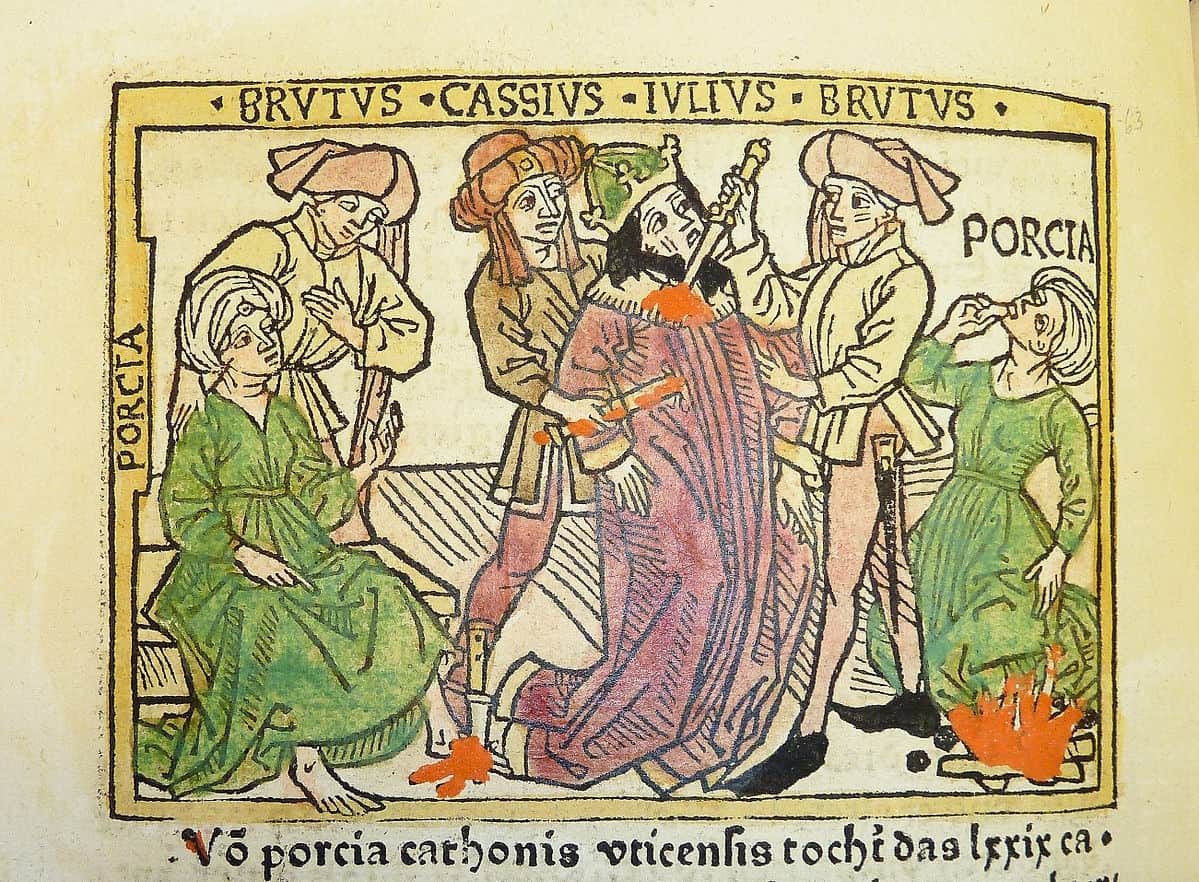 · BRVTVS · CASSIVS · IVLIVS · BRVTVS ·
PORCIA
PORCIA
63
Võ porcia cathonis vticensis tocht̄ das lxxix ca·